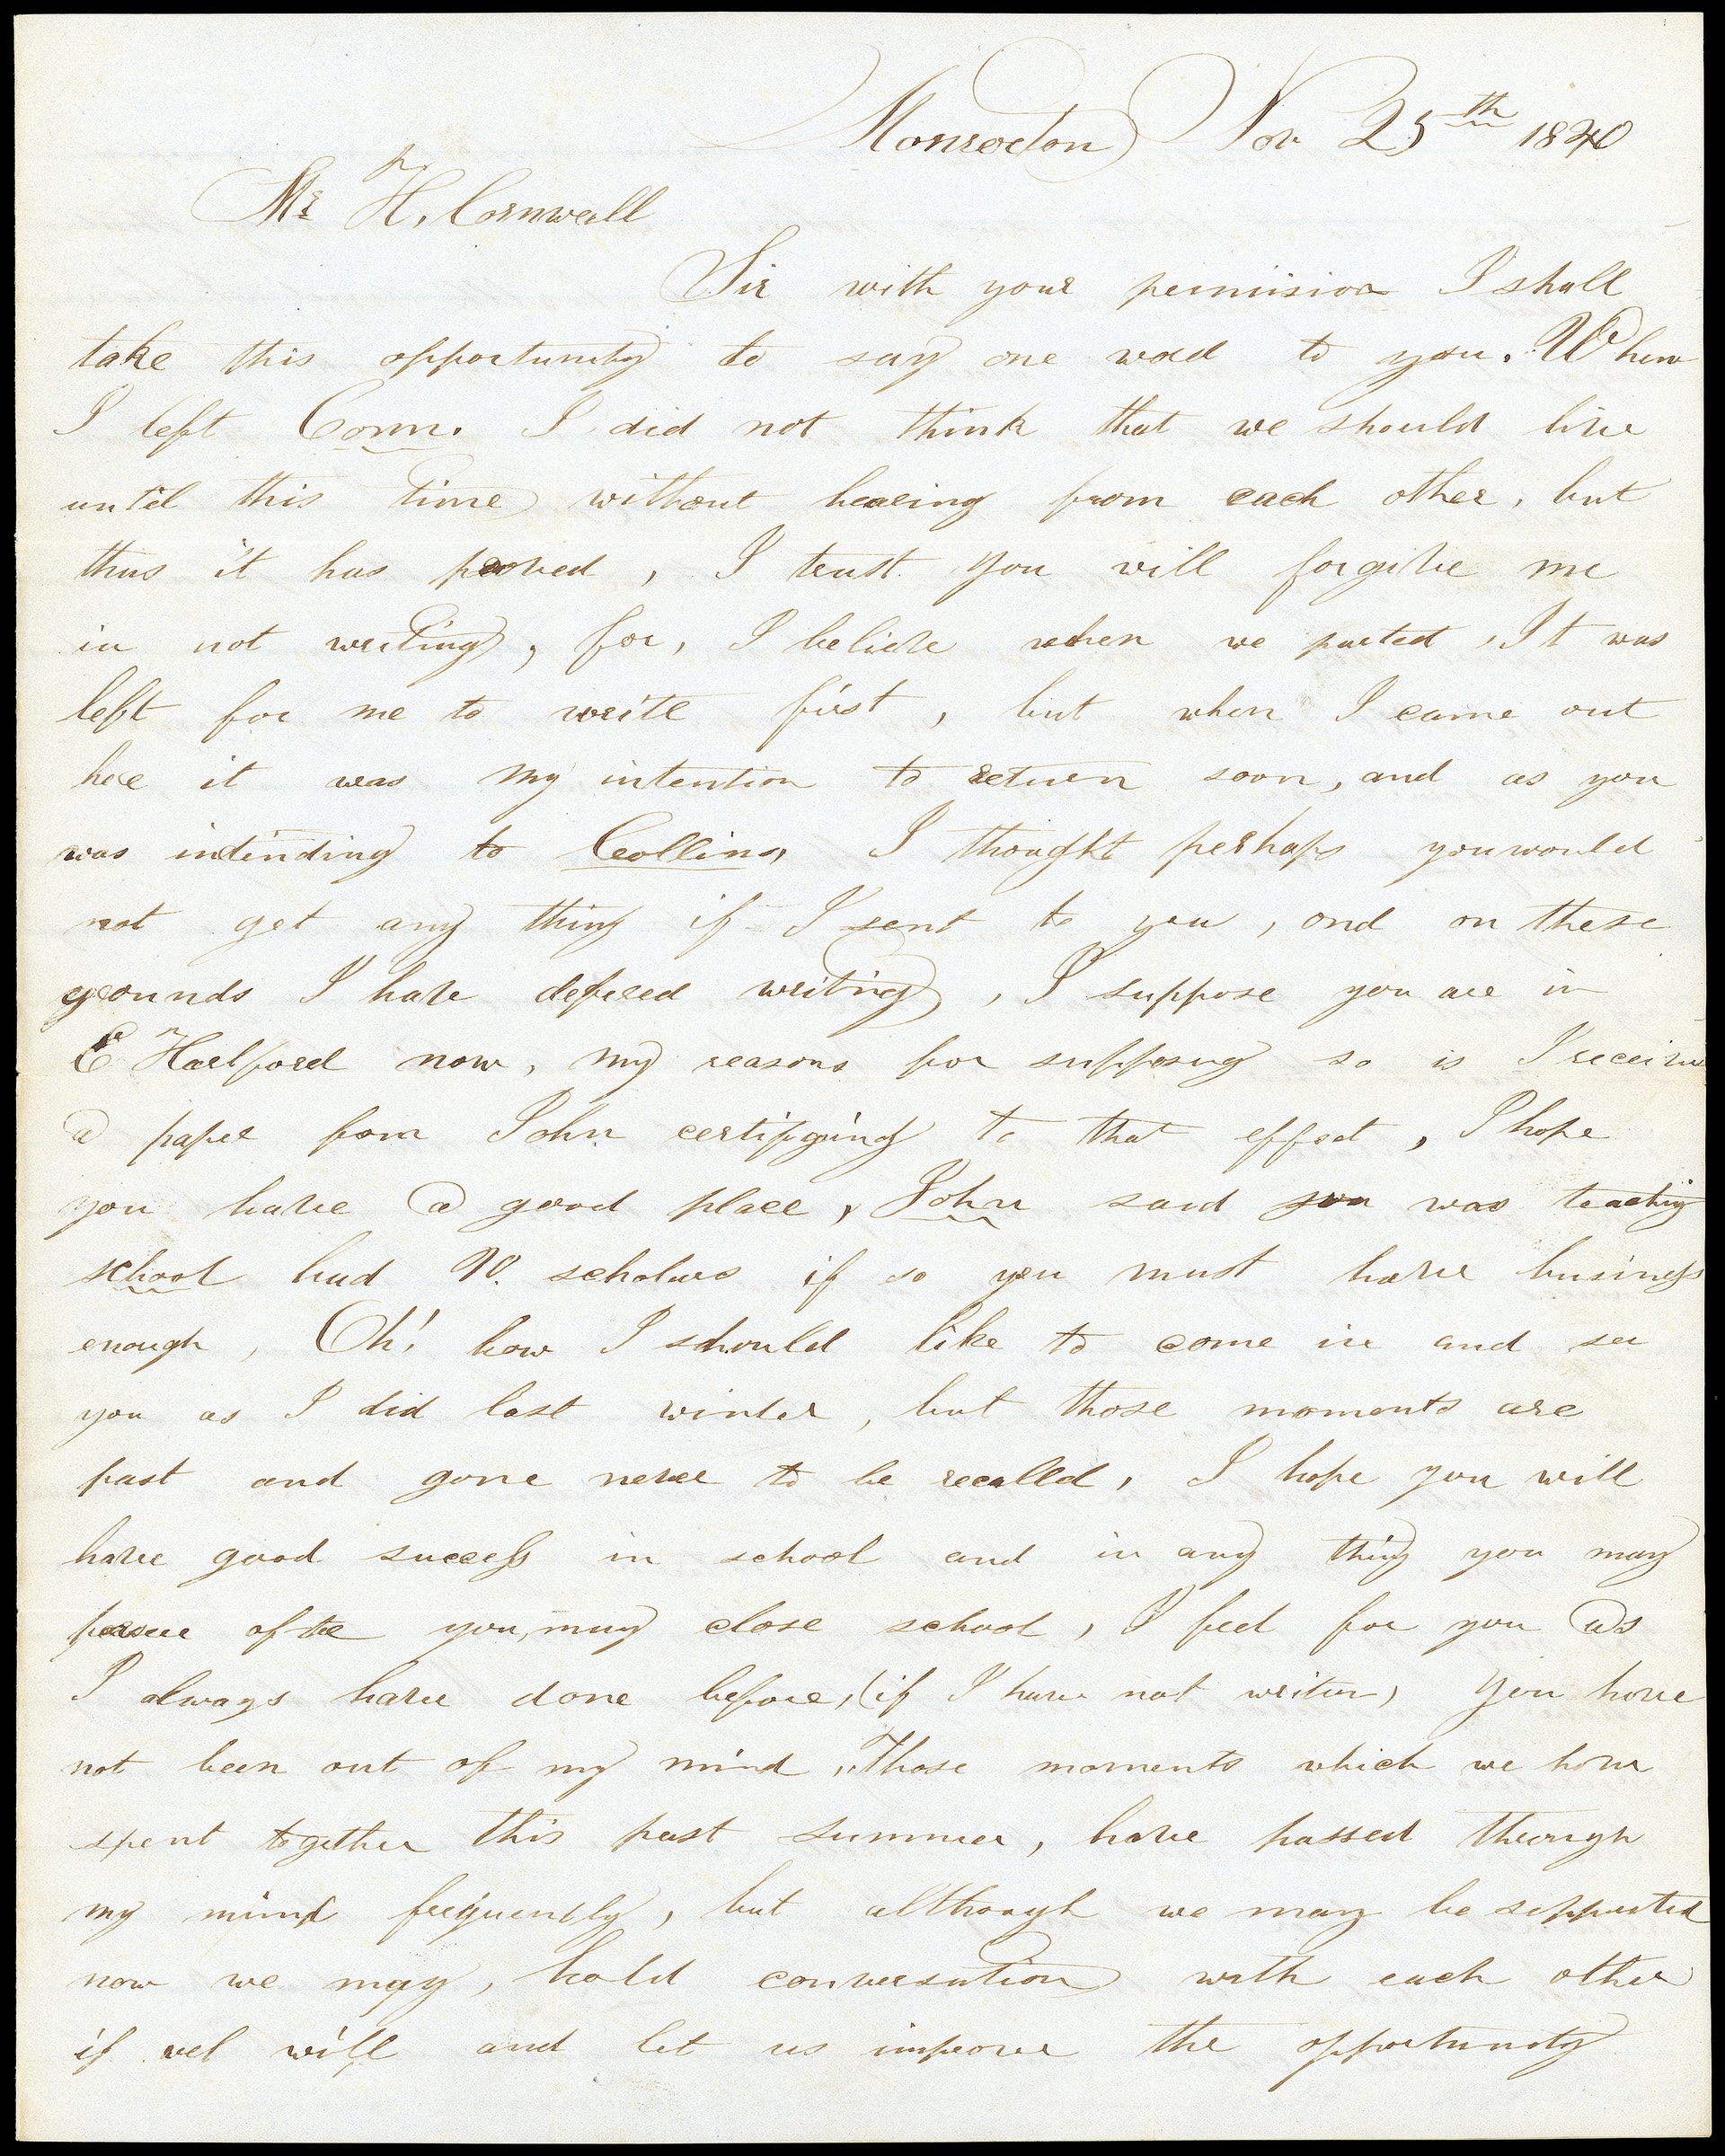 Monroeton Nov 25th 1840
Mr H. Cornwall
Sir with your permiision I shall
take this opportunity to say one word to you. When
I left Conn. I did not think that we should live
until this time without hearing from each other, but
thus it has proved, I trust you will forgive me
in not writing, for, I believe when we parted, It was
left for me to write first, but when I came out
here it was my intention to return soon, and as you
was intending to Collins, I thought perhaps you would
not get any thing if I sent to you, and on these
grounds I have defered writing, I suppose you are in
E Hartford now, my reasons for supposing so is I receive
a paper from John certifying to that effect, I hope
you have a good place, John said you was teaching
school had 90. scholars if so you must have business
enough, Oh! how I should like to come in and see
you as I did last winter, but those moments are
past and gone never to be recalled, I hope you will
have good success in school and in any thing you may
persue after you, may close school, I feel for you as
I always have done before, (if I have not writen) you have
not been out of my mind, Those moments which we have
spent together this past summer, have passed through
my mind frequently, but although we may be sepparted
now we may, hold conversation with each other
if we will and let us improve the opportunity